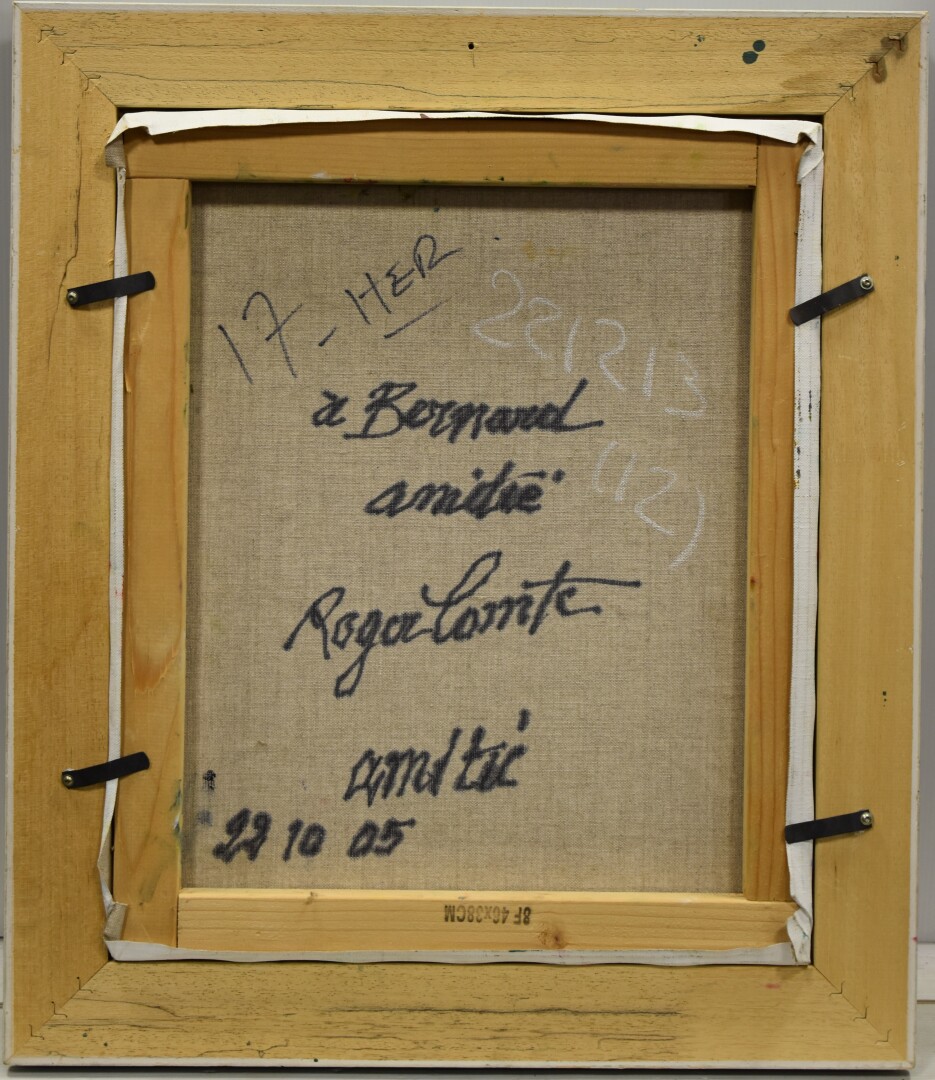 17_HER
221213
(12)
à Bernard
amitié
Roger Comte
amitié
22 10 05
8F 46x38CM